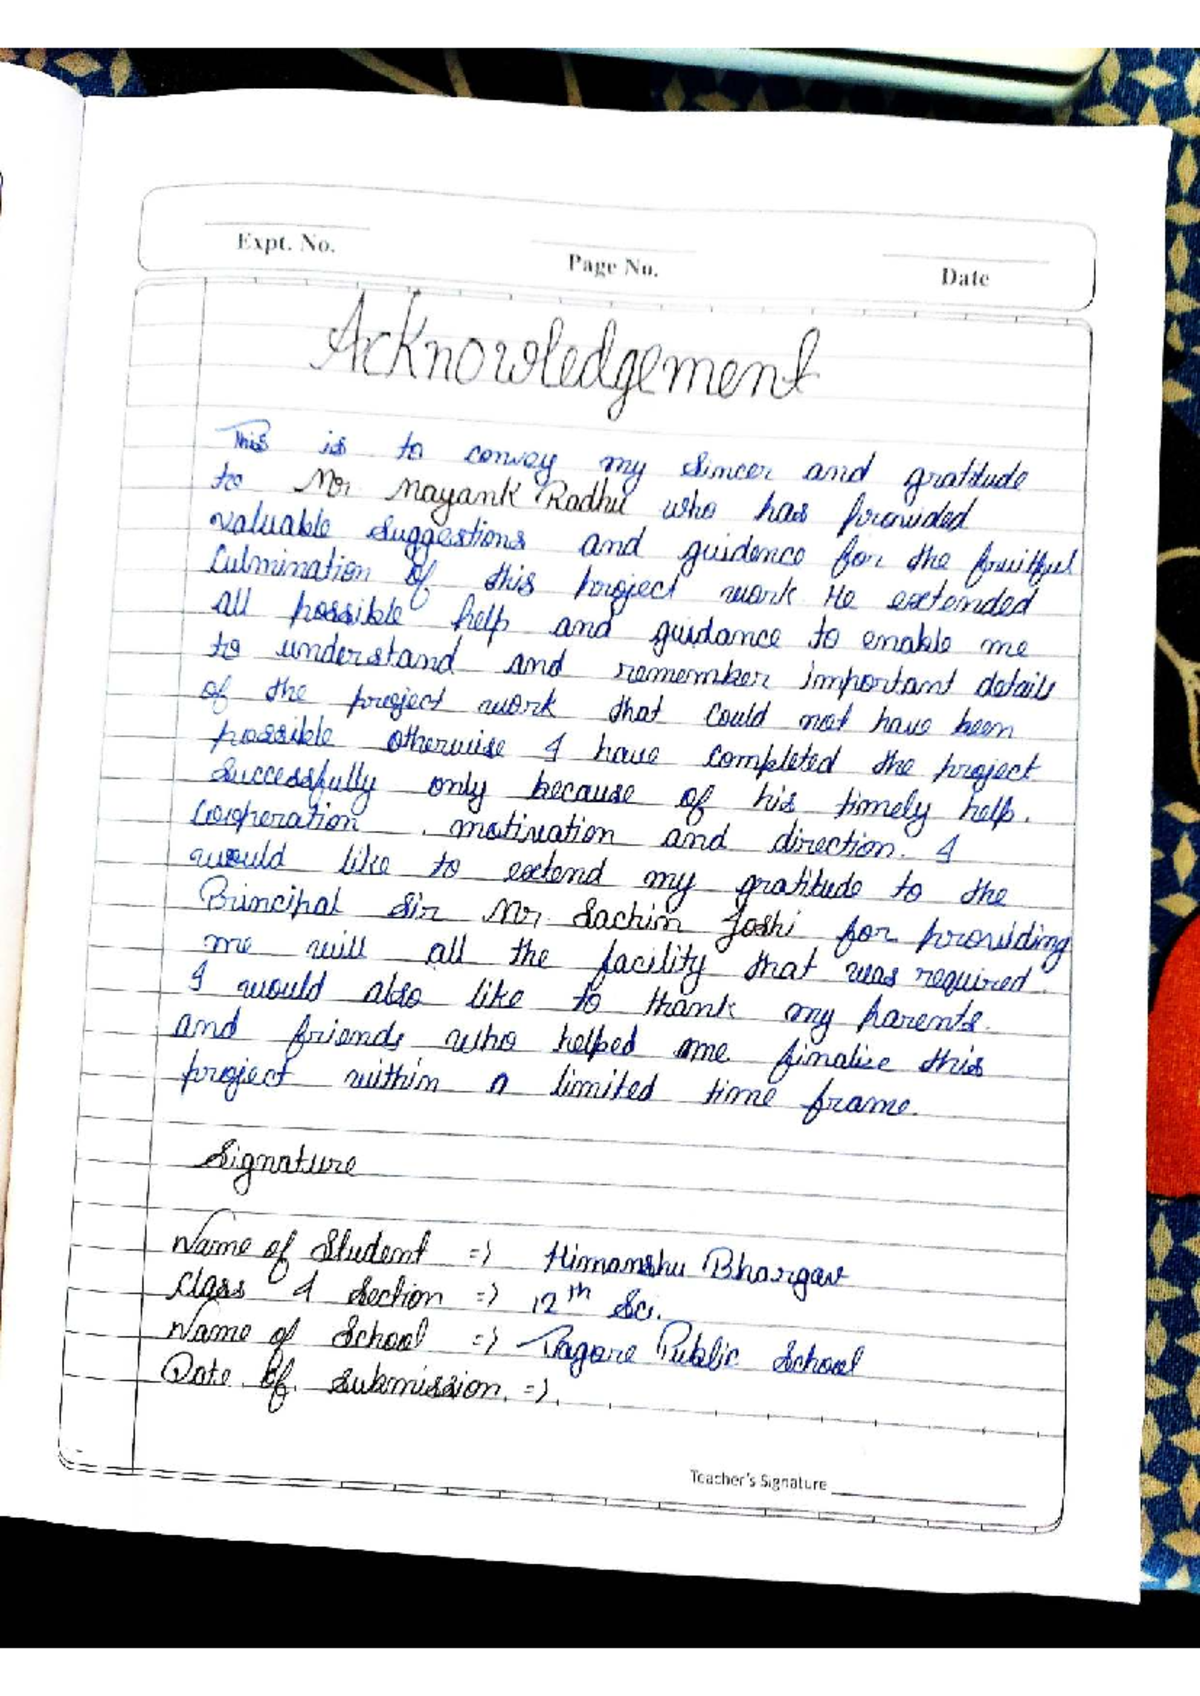 Expt. No.
Page No.
Date
Acknowledgement
This is to convey my sincer and gratitude
to Mr. Mayank Radhu who has provided
valuable suggestions and guidence for the fruitful
Culmination of this project work He extended
all possible help and guidance to enable me
to understand and remember important details
of the project work that could not have been
possible otherwise I have completed the project
successfully only because of his timely help.
cooperation . motivation and direction. I
would like to extend my gratitude to the
Principal Sir Mr. Sachin Joshi for providing
me will all the facility that was required.
I would also like to thank my parents.
and friends who helped me finalise this
project within a limited time frame.
Signature
Name of Student => Himanshu Bhargav
Class & Section => 12th Sci.
Name of School => Tagore Public School
Date of submission. =>.
Teacher's Signature